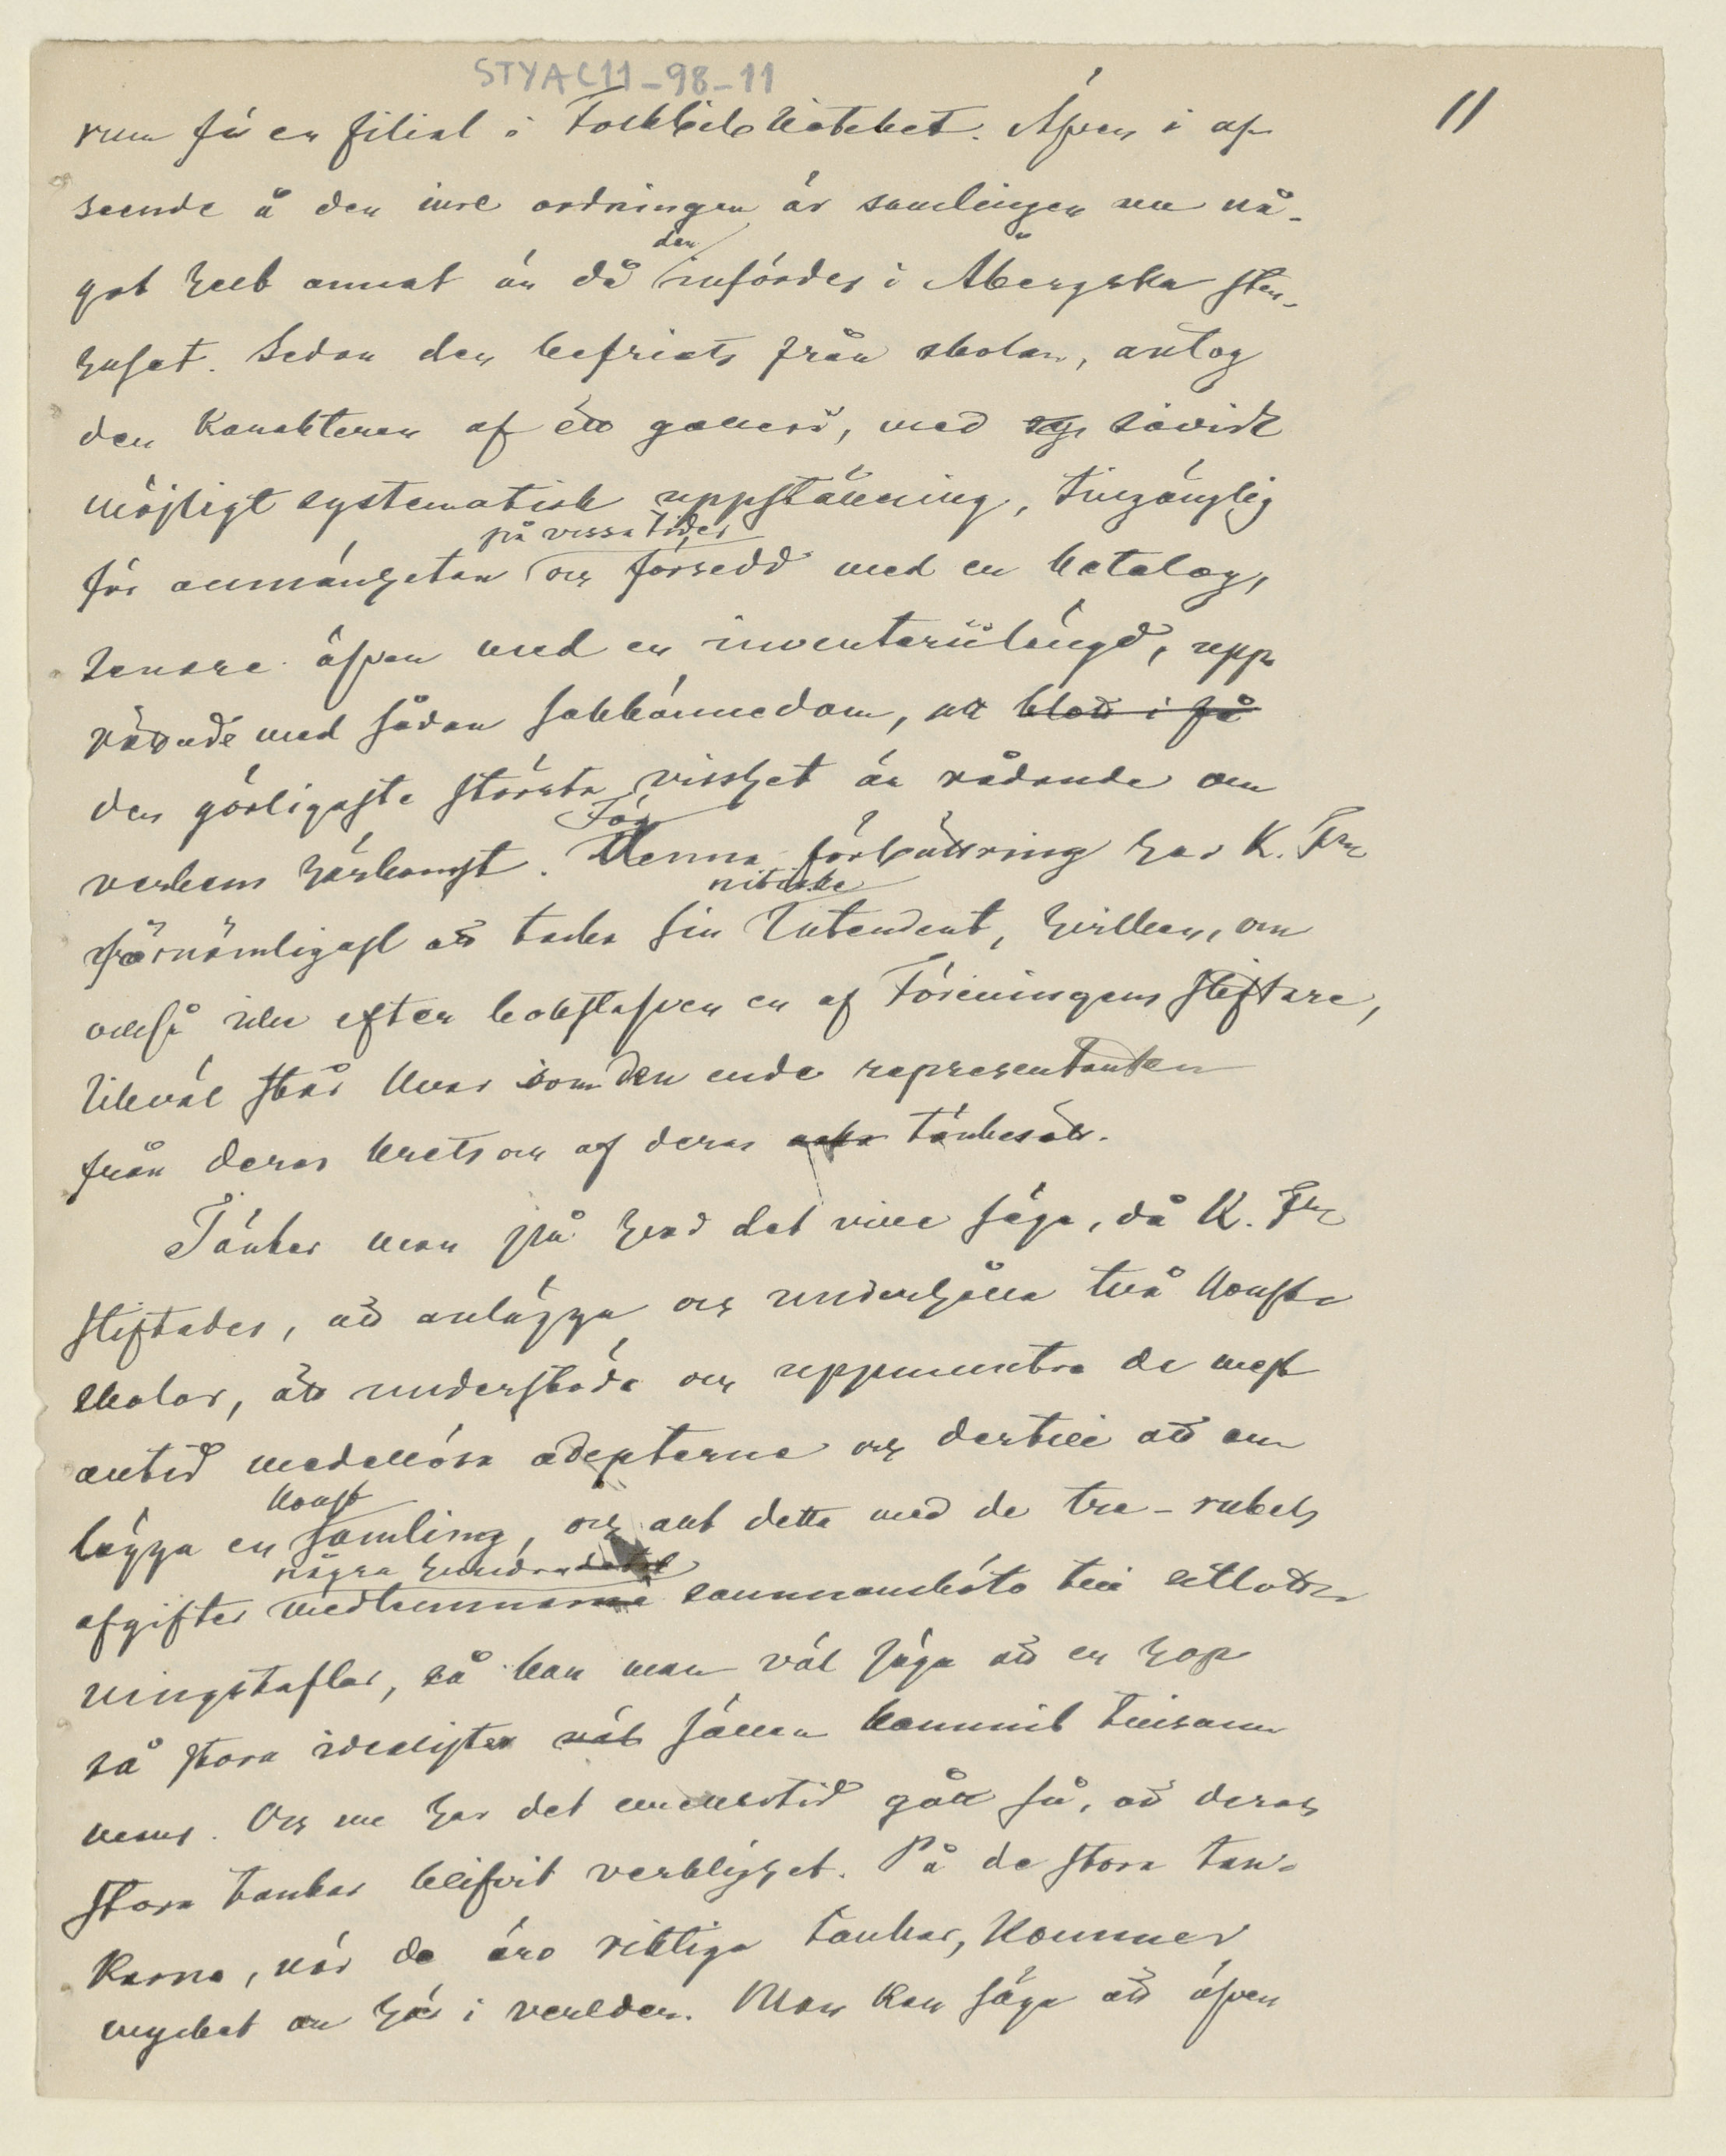 STYAC11-98-11
11
rum få en filial i Folkbiblioteket. Äfven i af
seende å den inre ordningen är samlingen nu nå-
got helt annat än då den infördes i Åbergska sten-
huset. Sedan den befriats från skolan, antog
den karakteren af ett galleri, med såvidt
möjligt systematisk uppställning, tillgänglig
för allmänheten på vissa tider och försedd med en katalog,
senare äfven med en inventariilängd, upp
rättade med sådan sakkännedom, att blott i få
den görligaste största visshet är rådande om
verkens härkomst. För Denna förbättring har K. Fng
förnämligast att tacka sin nitiske Intendent, hvilken, om
också icke efter bokstafven en af Föreningens stiftare,
likväl står kvar som den enda representanten
från deras krets och af deras tänkesätt.
Tänker man på hvad det ville säga, då K. Fng
stiftades, att anlägga och underhålla två konst
skolor, att understöda och uppmuntra de mest
alltid medellösa adepterna och dertill att an
lägga en konst samling, och allt detta med de tre-rubels
afgifter några hundradetal medlemmarne sammansköto till utlott
ningstaflor, så kan man väl säga att en hop
så stora idealister väl sällan kommit tillsam
mans. Och nu har det emellertid gått så, att deras
stora tankar blifvit verklighet. På de stora tan-
karna, när de äro riktiga tankar, kommer
mycket an här i verlden. Man kan säga att äfven